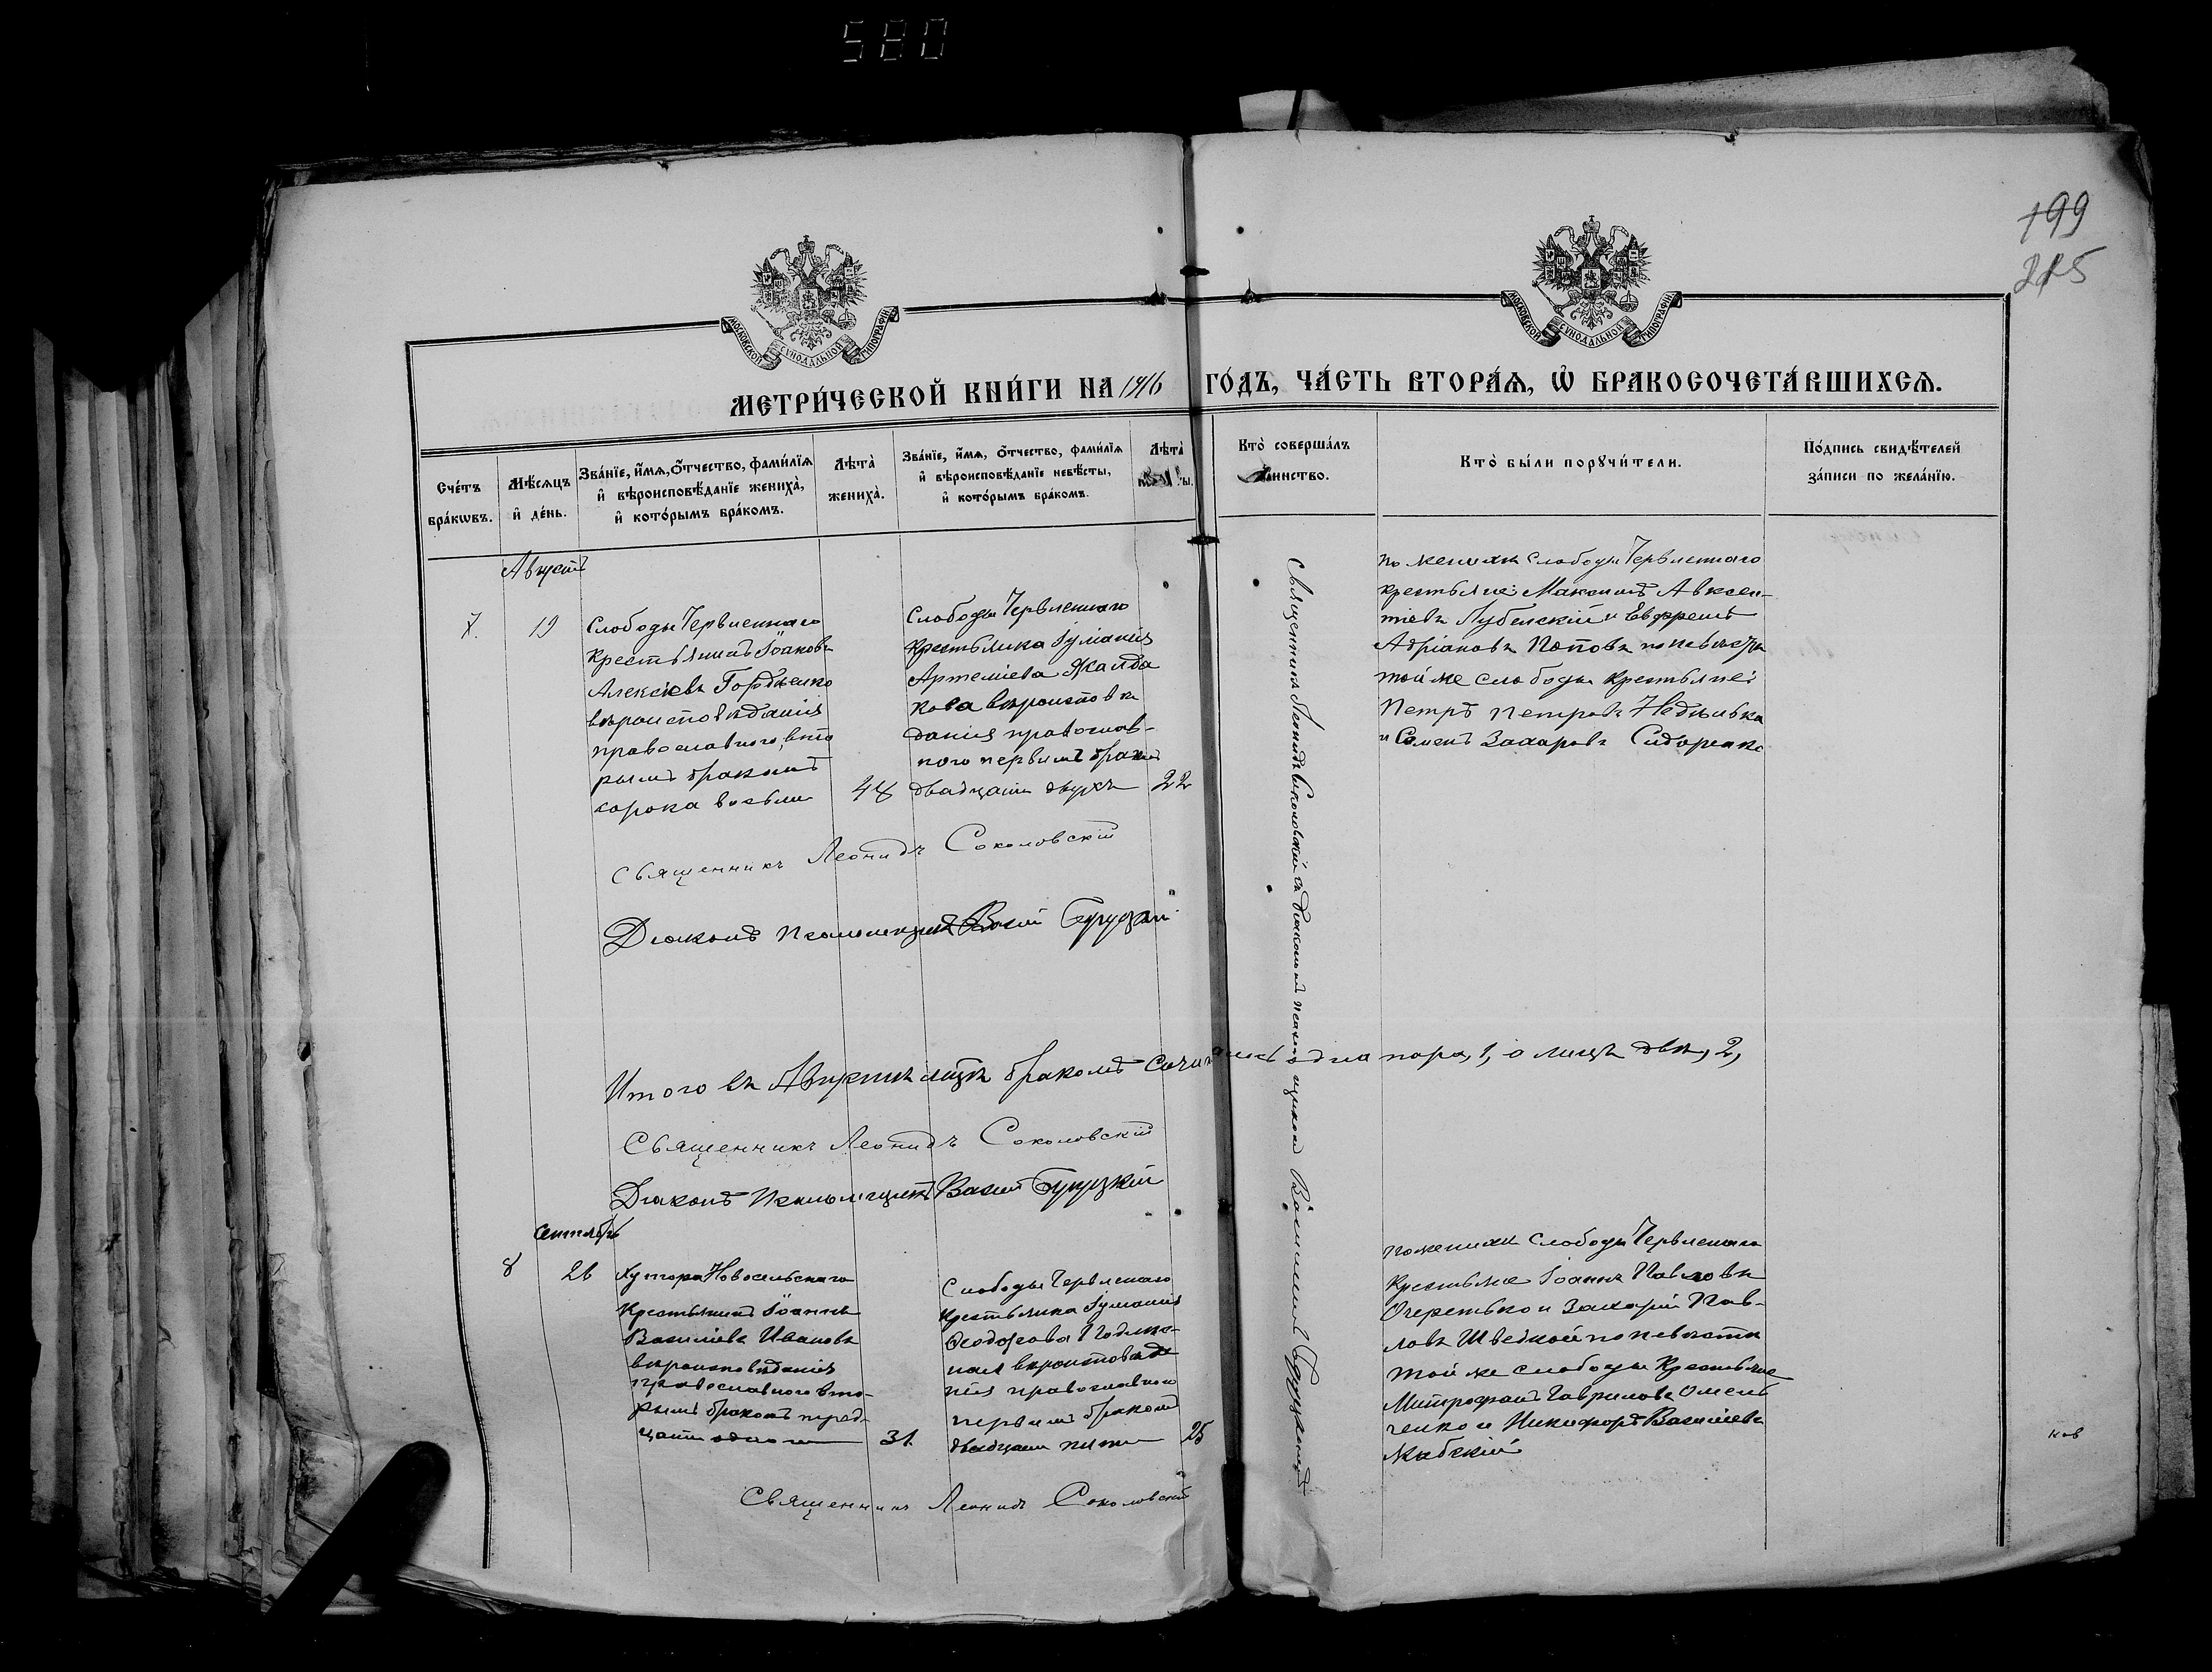 580
199
215
МОСКОВСКОЙ СУНОДАЛЬНОЙ ТИПОГРАФІИ
МОСКОВСКОЙ СУНОДАЛЬНОЙ ТИПОГРАФІИ
МЕТРИ́ЧЕСКОЙ КНИ́ГИ НА 1916 ГО́ДЪ, ЧА́СТЬ ВТОРА́Ѧ, Ѽ БРАКОСОЧЕТА́ВШИХСѦ.
Сче́тъ бра́кѡвъ.
Мѣ́сѧцъ и҆ де́нь.
Зва́нїе, и҆́мѧ, ѻ҆́тчество, фами́лїѧ
и҆ вѣроисповѣ́данїе жениха̀,
и҆ кото́рымъ бра́комъ.
Лѣта̀ жениха̀.
Зва́нїе, и҆́мѧ, ѻ҆́тчество, фами́лїѧ
и҆ вѣроисповѣ́данїе невѣ́сты,
и҆ кото́рымъ бра́комъ.
Лѣта̀
Кто̀ соверша́лъ
таинство.
Кто̀ бы́ли порꙋчи́тели.
По́дпись свидѣ́телей
за́писи по жела́нїю.
Августъ
7. 19
Слободы Червленнаго
крестьянинъ Іоаковъ
Алексѣевъ
вѣроисповѣданія
православнаго, вто
рымъ бракомъ
сорока восьми 48
Слободы Червленнаго
крестьянка Іуліанія
Артеміева Жалда
кова вѣроисповѣ
данія православ-
наго первымъ бракомъ
двадцати двухъ 22
по женихѣ слободы Червленнаго
крестьяне Максимъ Авксен-
тіевъ Лубенскій и Евфремъ
Адріановъ Поповъ по невѣстѣ
той же слободы крестьяне:
Петръ Петровъ
и Семенъ Захаровъ Сидоренко
Священникъ Леонидъ Соколовскій
Діаконъ псаломщикъ Васил
Священникъ Леонидъ Соколовскій съ діакономъ псаломщикомъ Василіемъ
Итого въ Августѣ мцѣ бракомъ сочеталась одна пара, 1, о лицѣ двѣ, 2,
Священникъ Леонидъ Соколовскій
Діаконъ псаломщикъ Васил
Сентябрь
8 26
Хутора Новосельскаго
крестьянинъ Іоаннъ
Василіевъ Ивановъ
вѣроисповѣданія
православнаго вто-
рымъ бракомъ трид-
цати одного 31.
Слободы Червленаго
крестьянка Іуліанія
Ѳеодорова
ная вѣроисповѣда
нія православнаго
первымъ бракомъ
двадцати пяти 25
по женихѣ слободы Червленнаго
крестьяне Іоаннъ Павловъ
Очеретько и Захарій Пав-
ловъ Шведкой по невѣстѣ
той же слободы крестьяне
Митрофанъ Гавриловъ Омель
ченко и Никифоръ Василіевъ
Священникъ Леонидъ Соколовскій
ков